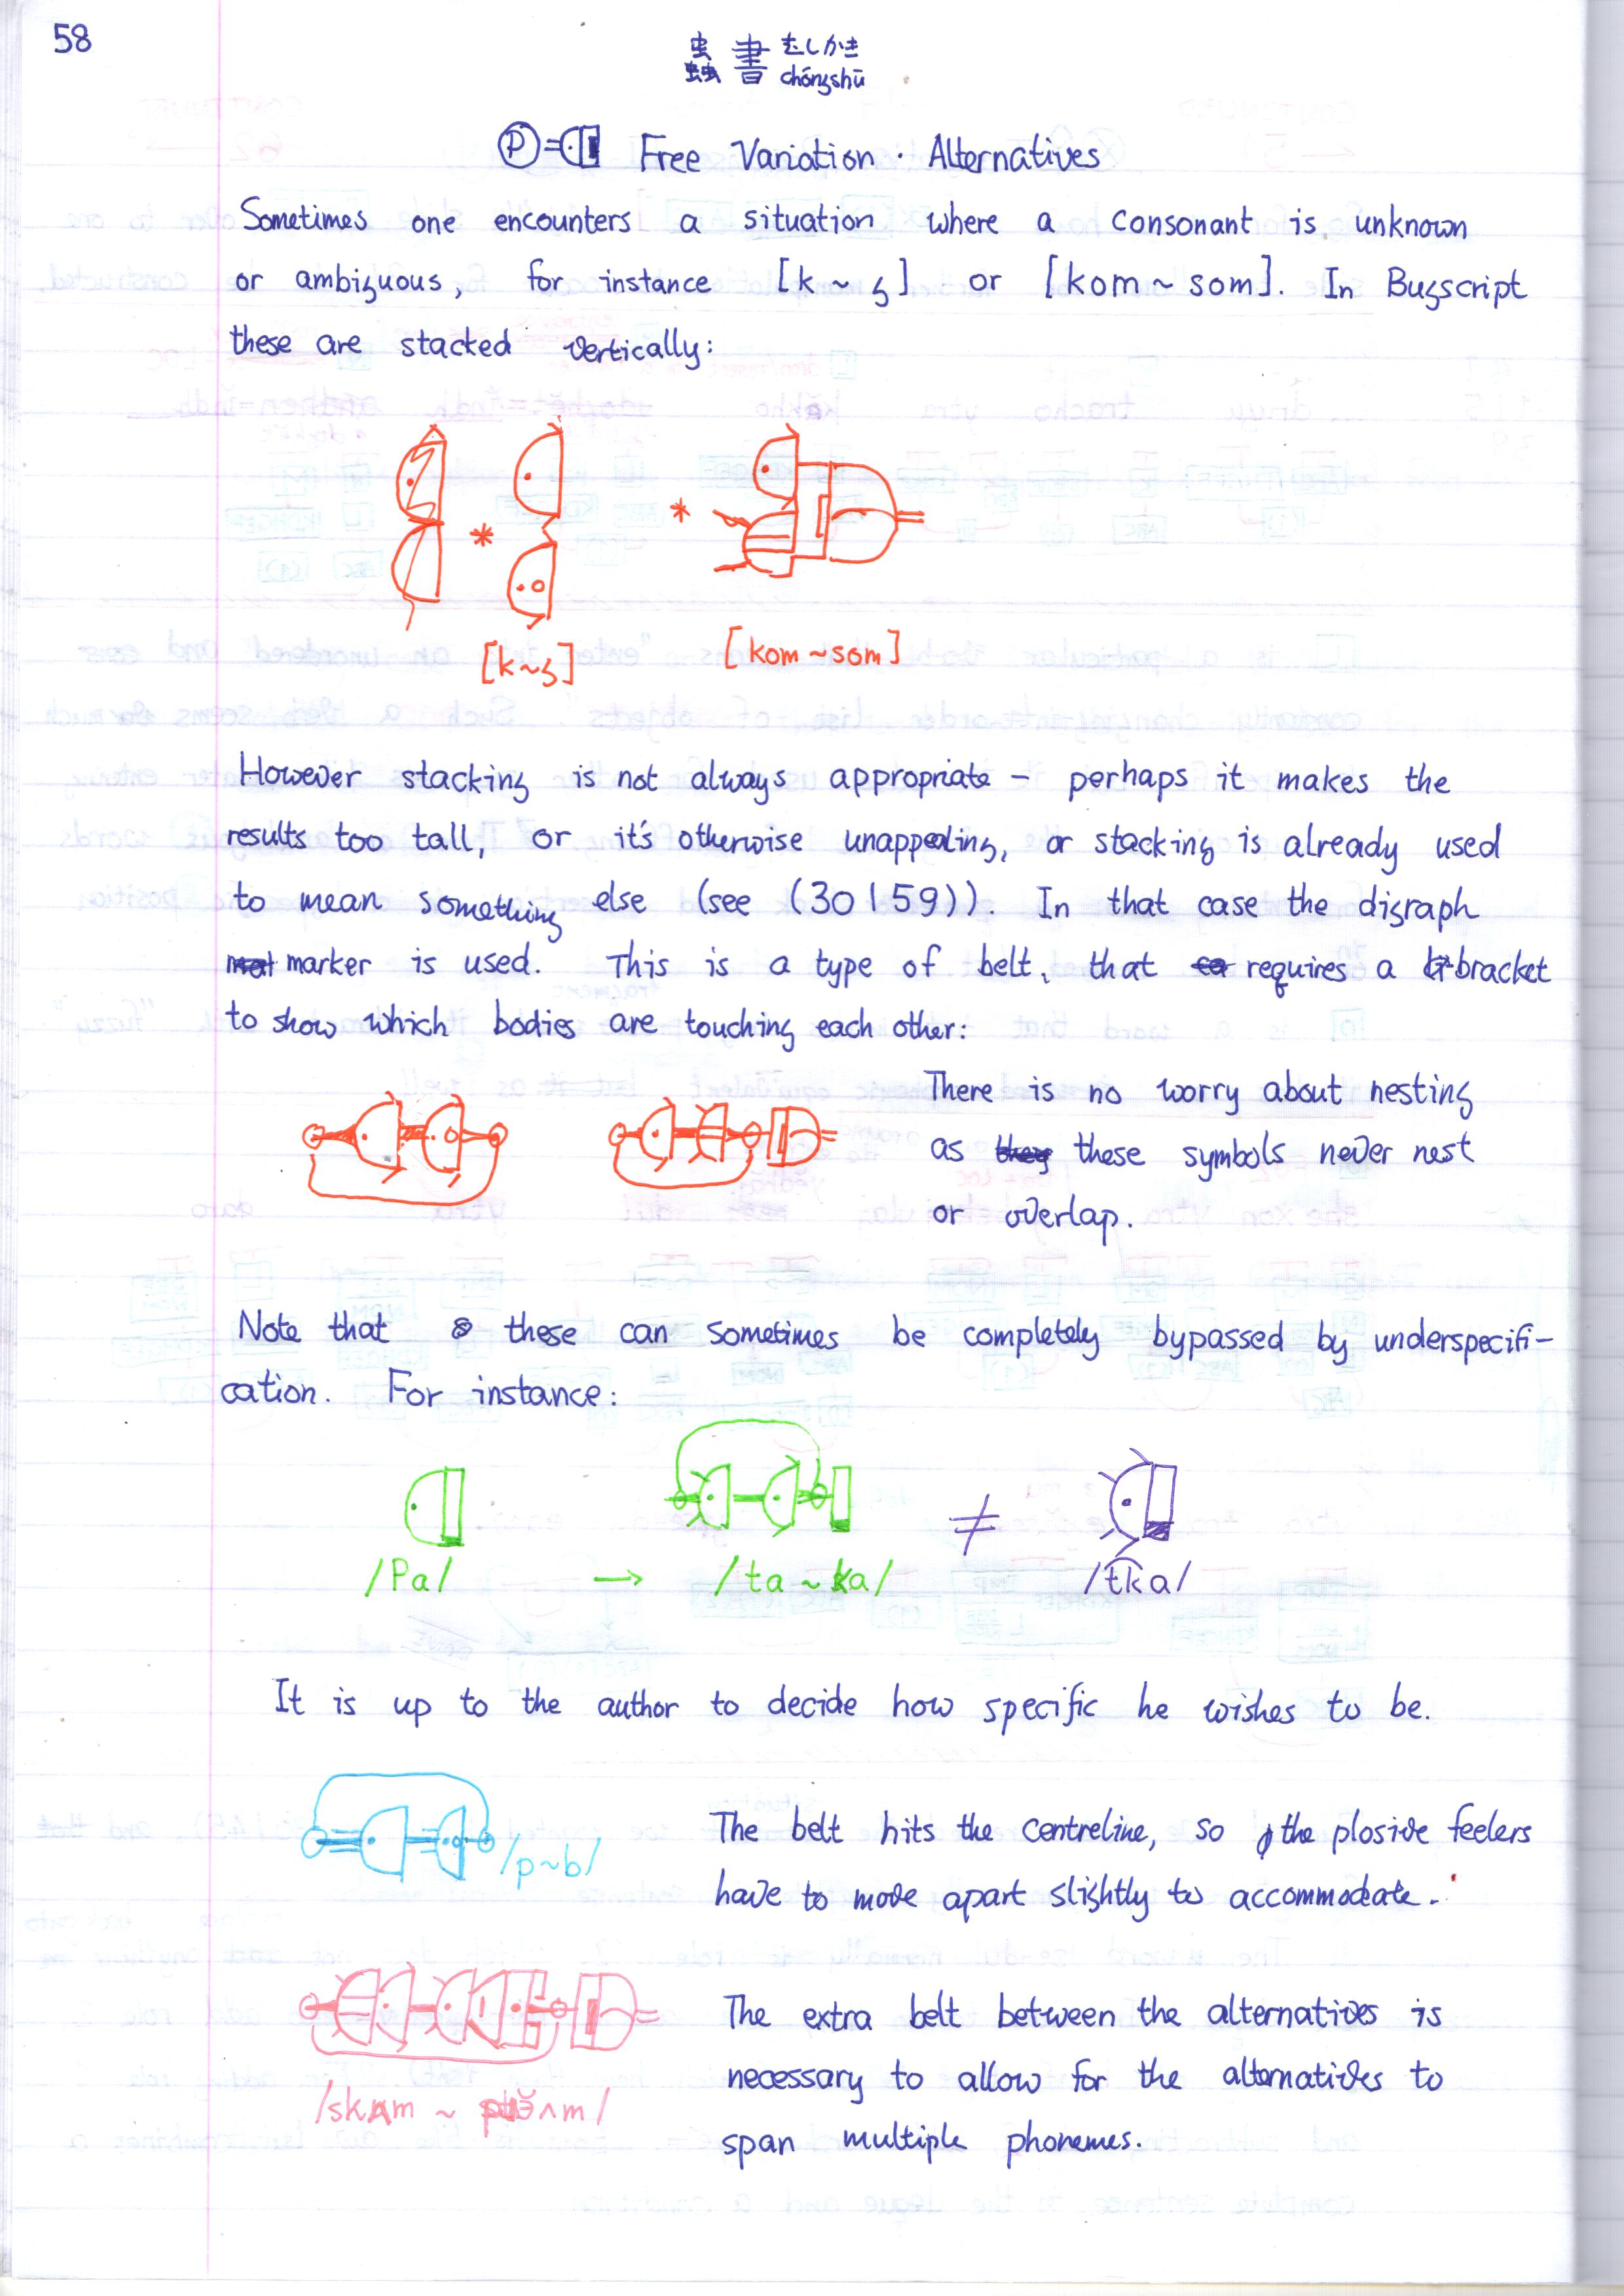 58
蟲書 むしかき
chóngshū
Free Variation · Alternatives
Sometimes one encounters a situation where a consonant is unknown
or ambiguous, for instance [k ~ ʒ] or [kom ~ som]. In Bugscript
these are stacked vertically:
* *
[k~ʒ] [kom ~ som]
However stacking is not always appropriate – perhaps it makes the
results too tall, or it's otherwise unappealing, or stacking is already used
to mean something else (see (30159)). In that case the digraph
marker is used. This is a type of belt, that requires a bracket
to show which bodies are touching each other:
There is no worry about nesting
as these symbols never nest
or overlap.
Note that these can sometimes be completely bypassed by underspecifi-
cation. For instance:
≠
/Pa/ → /ta ~ ka/ /t͡ka/
It is up to the author to decide how specific he wishes to be.
/p~b/
The belt hits the centreline, so the plosive feelers
have to move apart slightly to accommodate.
The extra belt between the alternatives is
necessary to allow for the alternatives to
span multiple phonemes.